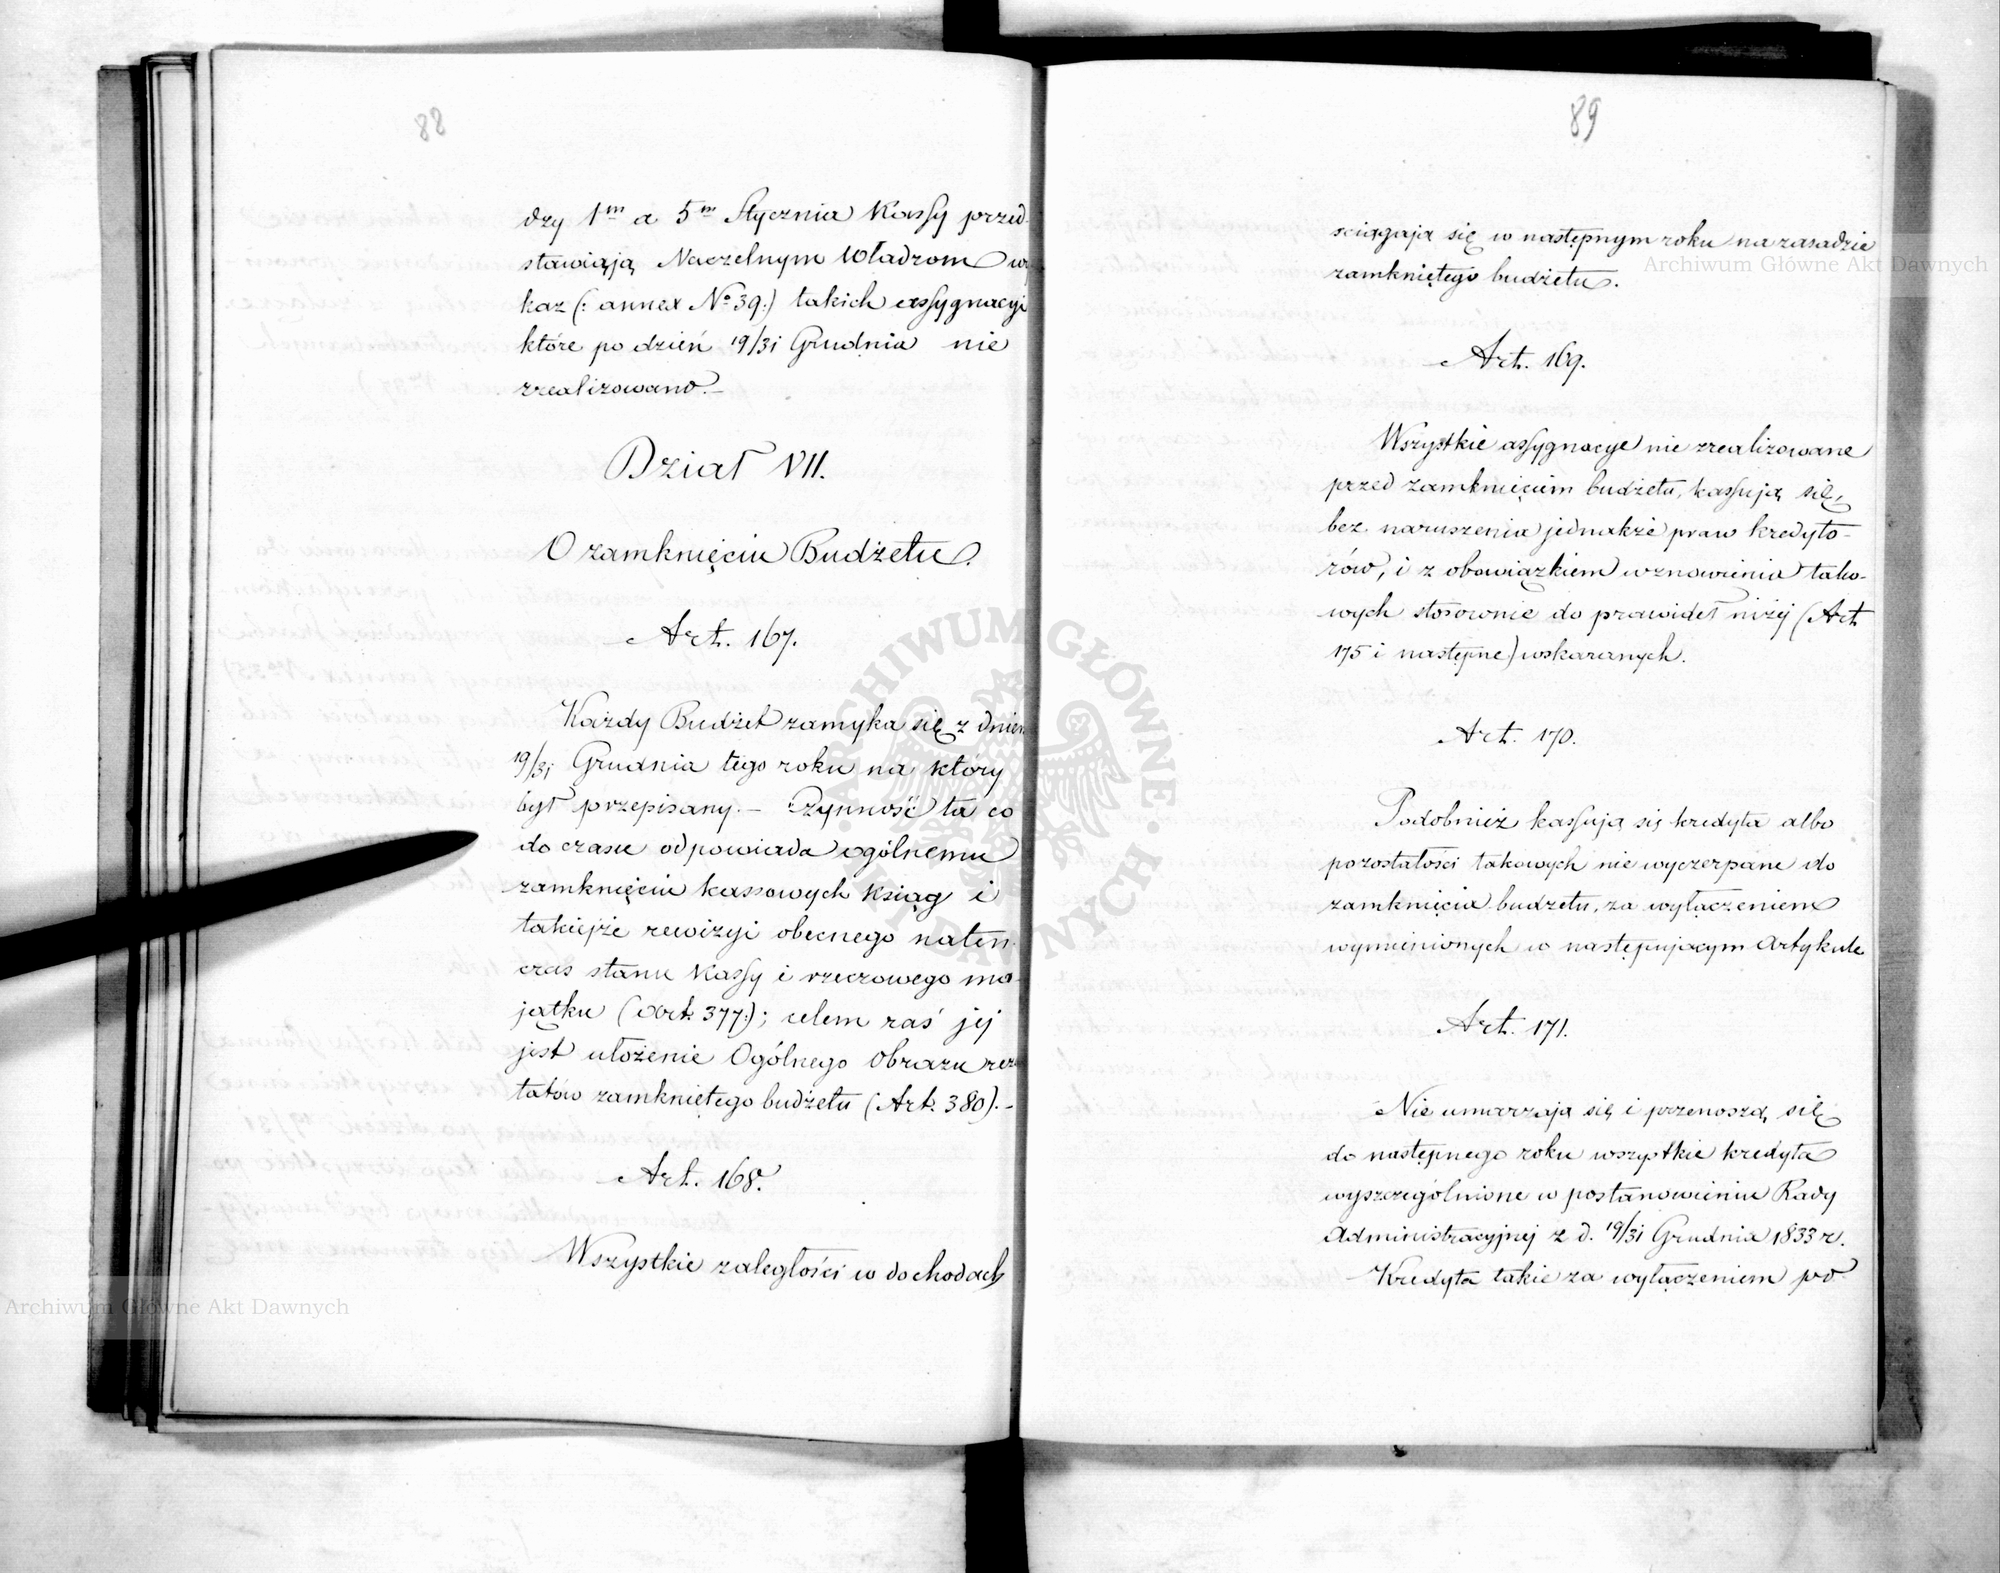 88
dzy 1m a 5m Stycznia Kassy przed-
stawiają Naczelnym Władzom wy
kaz (: annex No 39:) takich assygnacyi
które po dzień 19/31 Grudnia nie
zrealizowano.–
Dział VII.
O zamknięciu Budżetu.
Art. 167.
Każdy Budżet zamyka się z dniem
19/31 Grudnia tego roku na który
był przepisany.– Czynność ta co
do czasu odpowiada ogólnemu
zamknięciu kassowych Ksiąg i
takiejże rewizyi obecnego naten-
czas stanu Kassy i rzeczowego ma-
jątku (art. 377:); celem zaś jej
jest ułożenie Ogólnego Obrazu rezu
tatów zamkniętego budżetu (Art. 380).–
Art. 168.
Wszystkie zaległości w dochodach
89
sciągają się w następnym roku na zasadzie
zamkniętego budżetu.
Art. 169.
Wszystkie assygnacye nie zrealizowane
przed zamknięciem budżetu, kassują się,
bez naruszenia jednakże praw kredyto-
rów, i z obowiązkiem wznowienia tako-
wych stosownie do prawideł niżej (Art.
175 i następne) wskazanych.
Art. 170.
Podobnież kassują się kredyta albo
pozostałości takowych nie wyczerpane do
zamknięcia budżetu, za wyłączeniem
wymienionych w następującym Artykule
Art. 171.
Nie umarzają się i przenoszą się
do następnego roku wszystkie kredyta
wyszczególnione w postanowieniu Rady
Administracyjnej z d. 19/31 Grudnia 1833 r.
Kredyta takie za wyłączeniem po-
Archiwum Główne Akt Dawnych
Archiwum Główne Akt Dawnych
ARCHIWUM GŁÓWNE AKT DAWNYCH